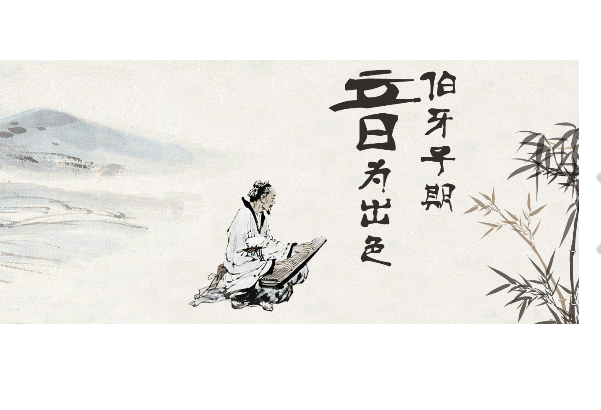 伯牙子期
音为出色